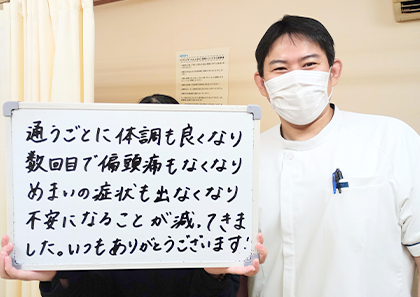 通うごとに体調も良くなり
数回目で偏頭痛もなくなり
めまいの症状も出なくなり
不安になることが減ってきま
した。いつもありがとうございます!